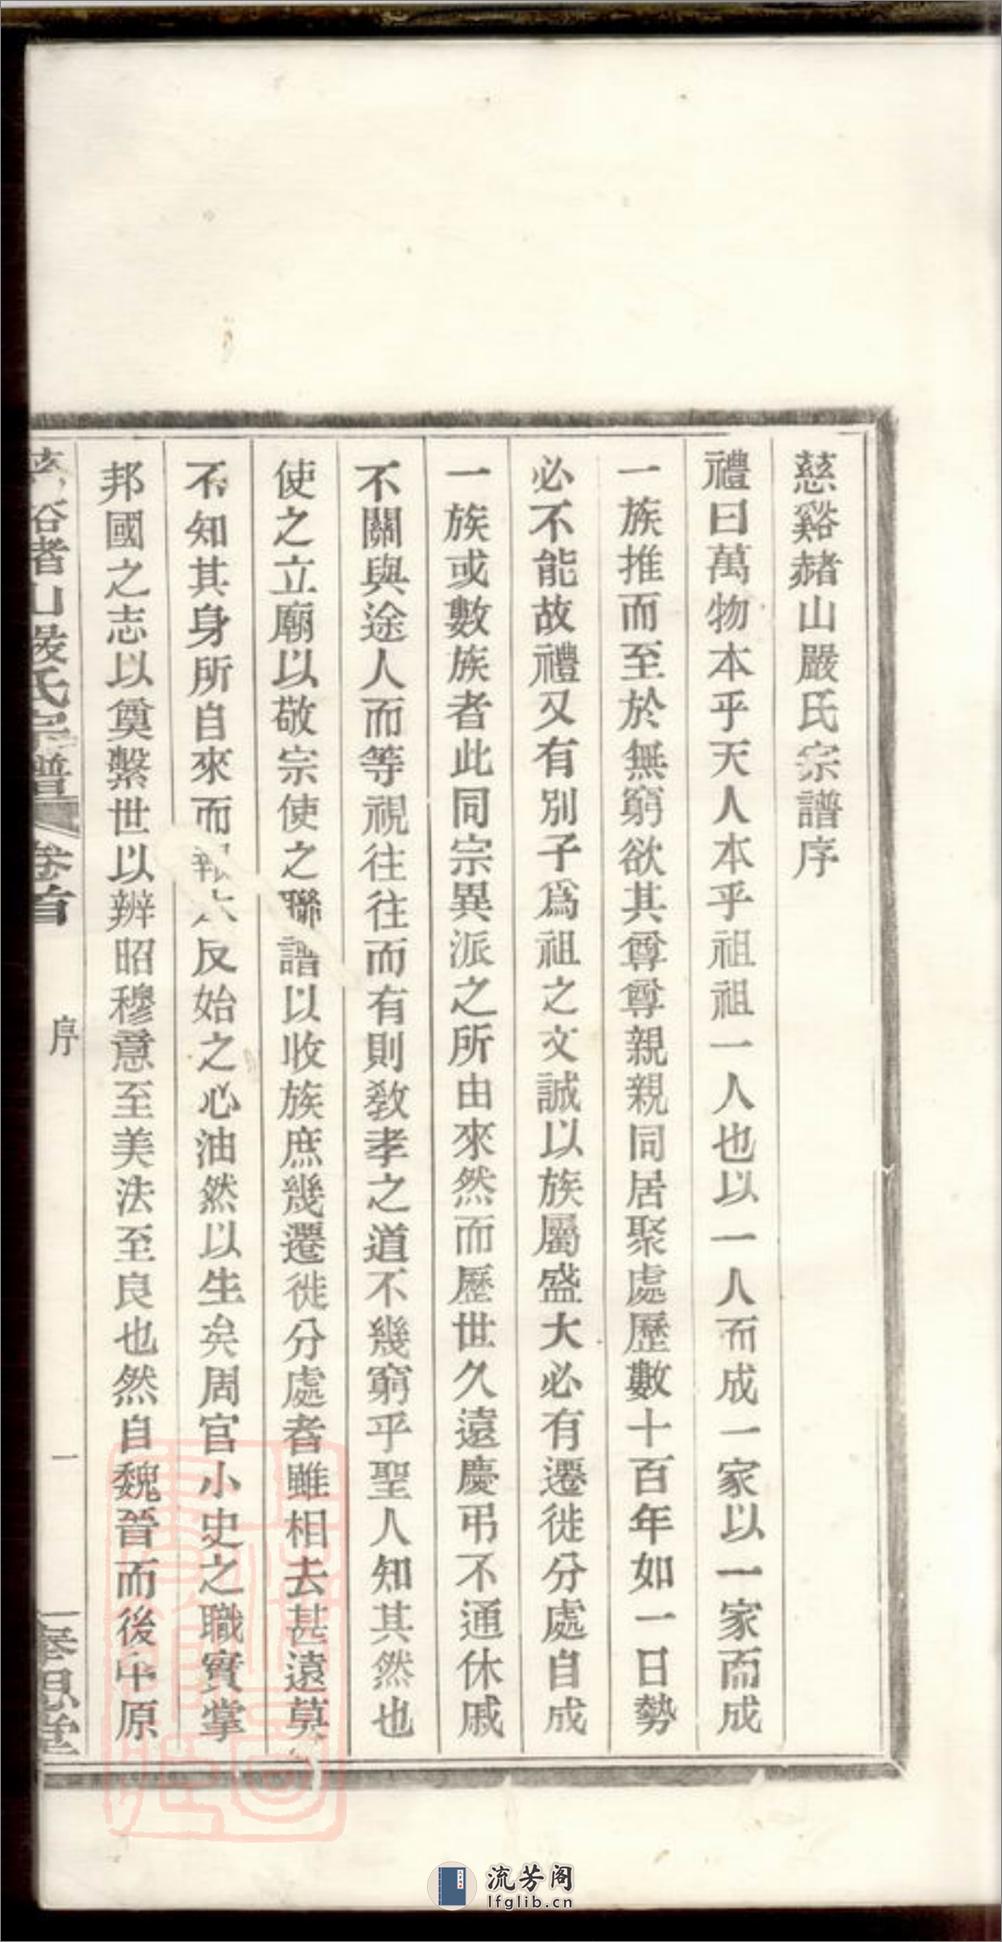 慈谿赭山嚴氏宗譜序
禮曰萬物本乎天人本乎祖祖一人也以一人而成一家以一家而成
一族推而至於無窮欲其尊尊親親同居聚處歷數十百年如一日勢
必不能故禮又有別子爲祖之文誠以族屬盛大必有遷徙分處自成
一族或數族者此同宗異派之所由來然而歷世久遠慶弔不通休戚
不關與途人而等視往往而有則敎孝之道不幾窮乎聖人知其然也
使之立廟以敬宗使之聯譜以收族庶幾遷徙分處者雖相去甚遠莫
不知其身所自來而報本反始之心油然以生矣周官小史之職實掌
邦國之志以奠繫世以辨昭穆意至美法至良也然自魏晉而後中原
谿赭山嚴氏宗譜 卷首 序 一 思堂
流芳阁
lfglib.cn